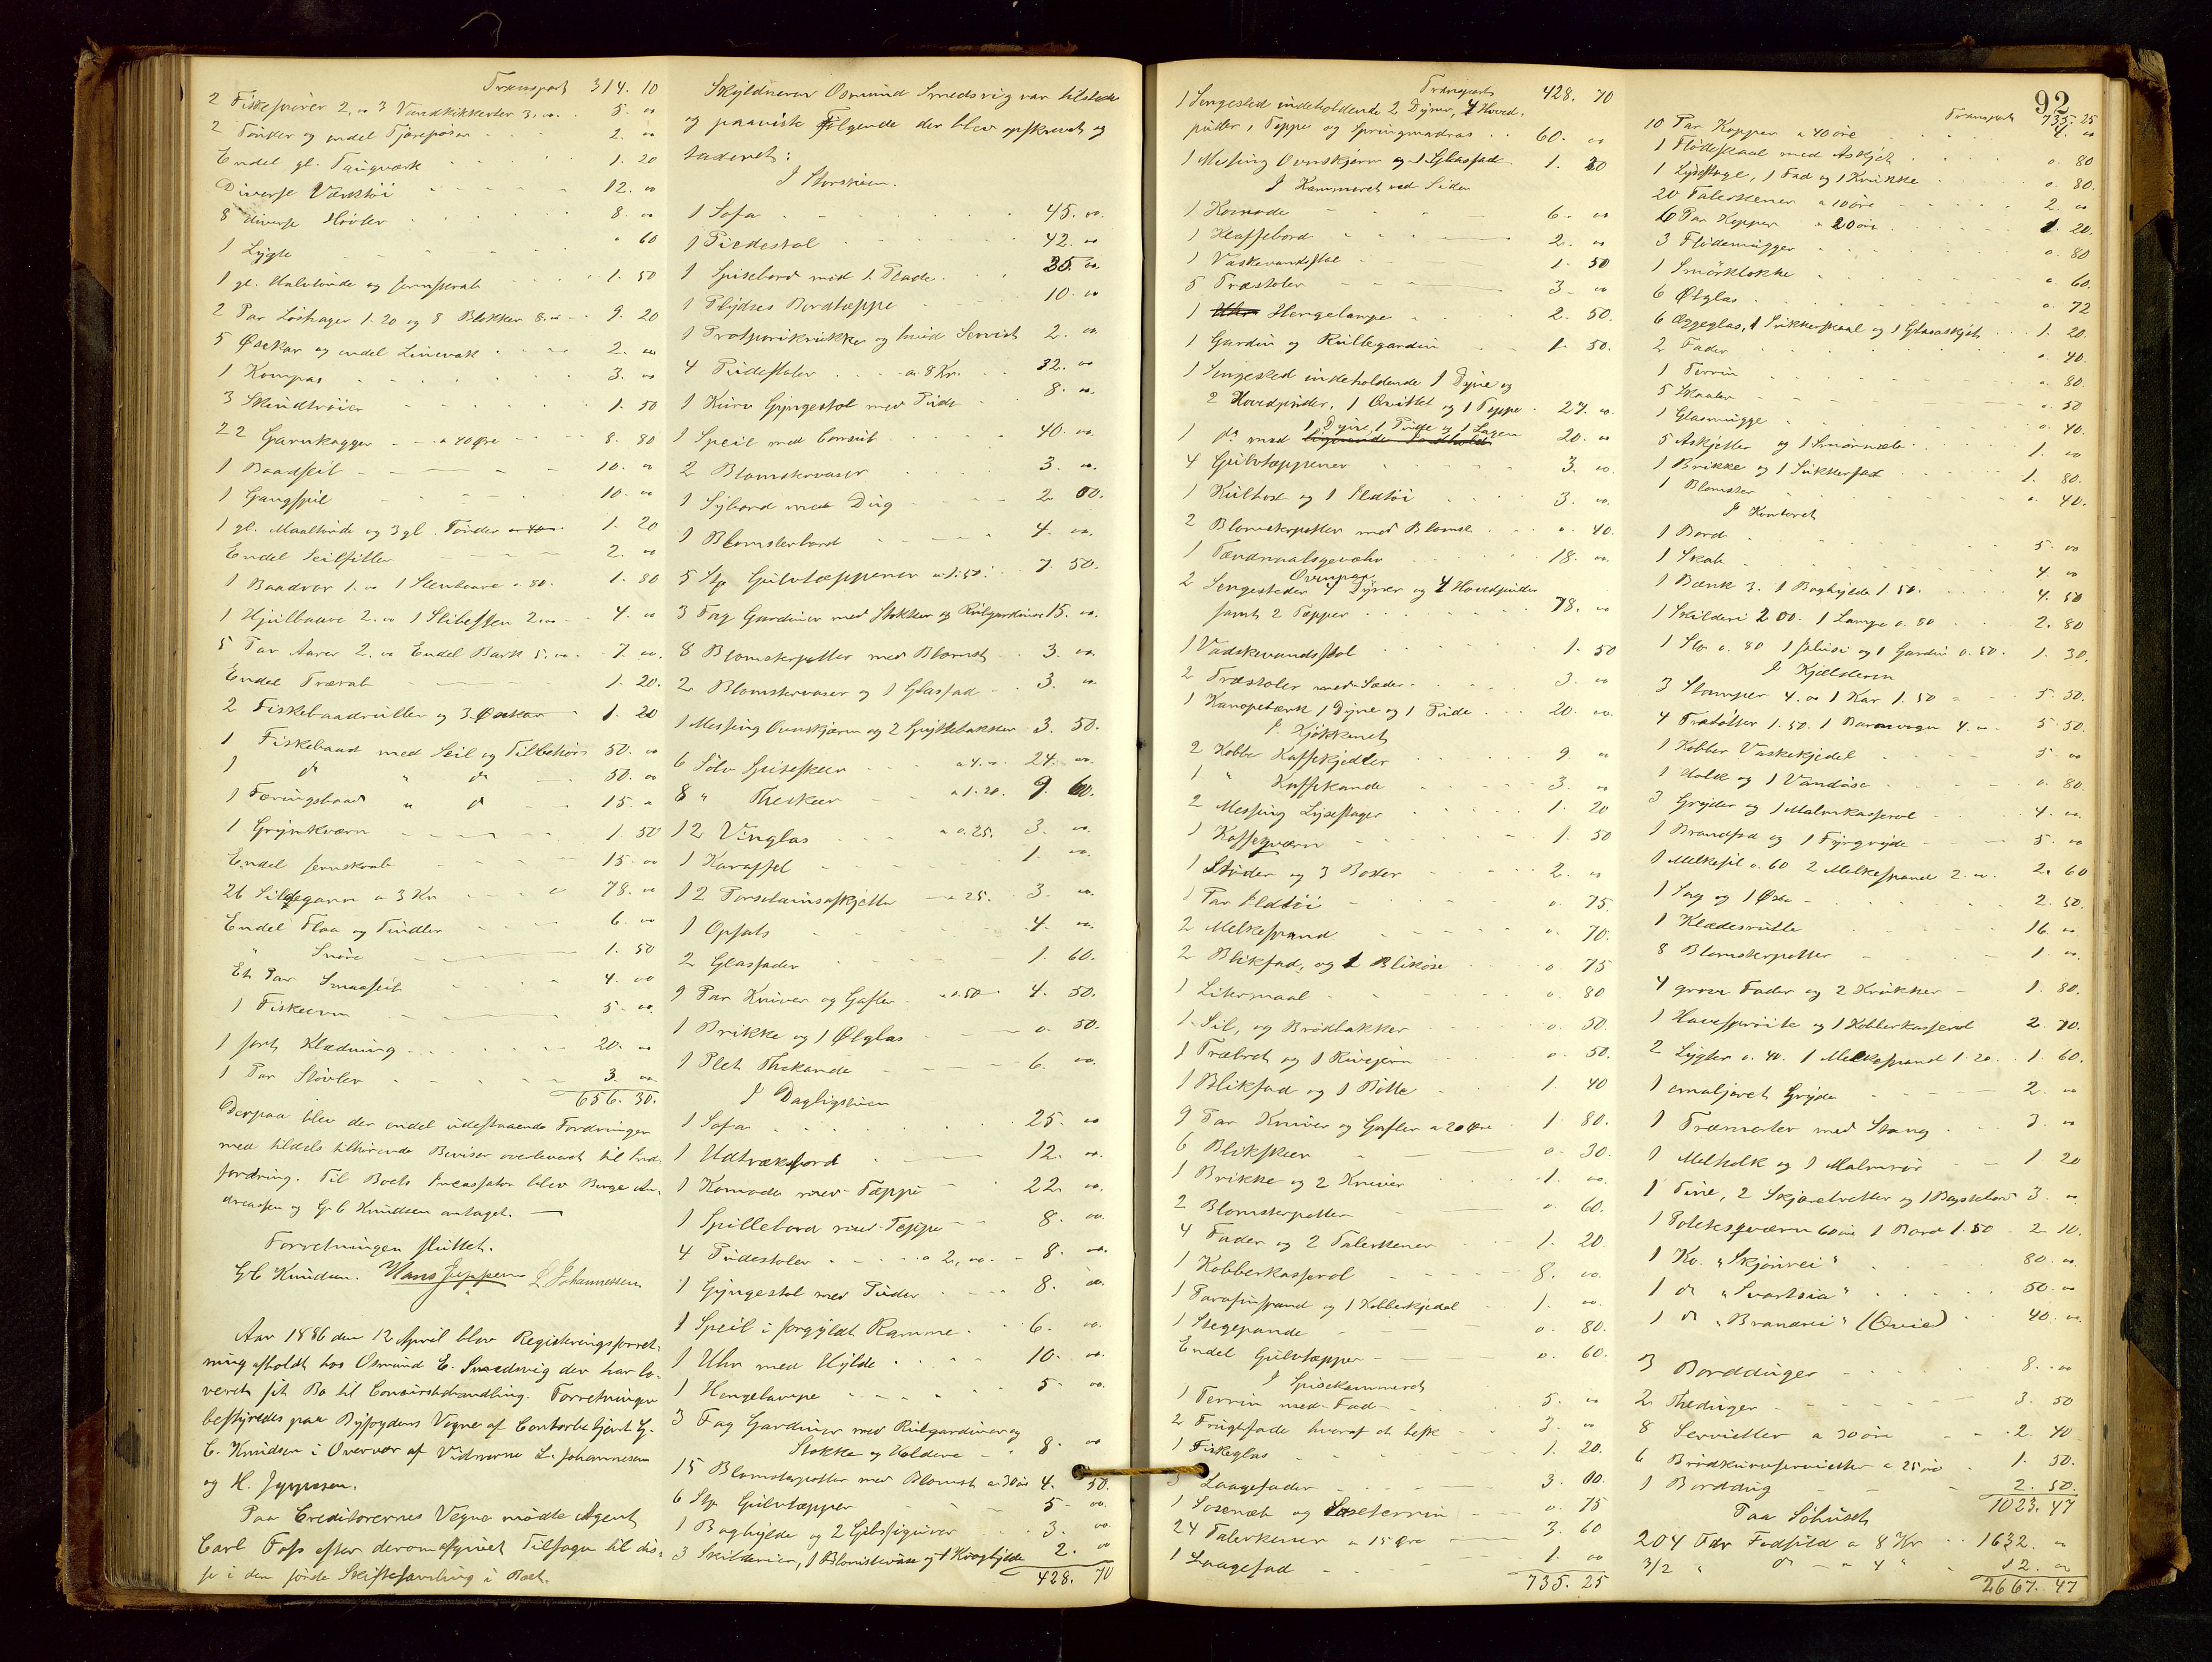 Transport 314. 10
2 Fiskesnører 2,00 3 Vandkikkerter 3,00 . 5. 00
2 Tønder og endel Tjærepøser 2. 00
Endel gl. Taugværk 1. 20
Diverse Værktøi 12. 00
8 diverse Høvler 8. 00
1 Lygte " 60
1 gl. Halvtønde og jernskrab 1. 50
2 Par Løshager 1.20 og 8 Blokker 8.00 9. 20
5 Øsekar og endel Linevak 2. 00
1 Kompas 3. 00
3 Skindtrøier 1. 50
22 Garnkagger a 40 Øre 8. 80
1 Baadseil 10. 00
1 Gangspil 10. 00
1 gl. Maaltønde og 3 gl. Tønder 1. 20
Endel Seilfiller 2. 00
1 Baadvor 1.00 1 Stenbaare 0.80. 1. 80
1 Hjulbaare 2.00 1 Slibesten 2.00 4. 00
5 Par Aarer 2.00 Endel Bark 5.00 7. 00.
Endel Trærab 1. 20.
2 Fiskebaadruller og 3 Øsekar 1. 20
1 Fiskebaad med Seil og Tilbehør 50. 00
1 do " do 50. 00
1 Færingsbaad " do 15. "
1 Grynkværn 1. 50
Endel jernskrab 15. 00
26 Sildegarn a 3 Kr 78. 00
Endel Flaa og Tindler 6. 00
" Snøre 1. 50
Et Par Smaaseil 4. 00
1 Fiskeørn 5. 00.
1 sort Klædning 20. 00
1 Par Støvler 3. 00
656. 30.
Derpaa blev der endel udestaaende Fordringer
med tildels tilhørende Beviser overleveret til Ind-
fordring. Til Boets Incassator blev Børge An-
dreassen og G. C. Knudsen antaget. —
Forretningen sluttet.
G C Knudsen. Hans Jeppesen L. Johannessen
Aar 1886 den 12 April blev Registreringsforret-
ning afholdt hos Osmund E. Smedsvig der har le-
veret sit Bo til Concursbehandling. Forretningen
bestyredes paa Byfogdens Vegne af Contorbetjent G.
C. Knudsen i Overvær af Vidnerne L. Johannesen
og H. Jeppesen.
Paa Creditorernes Vegne mødte Agent
Carl Foss efter derom afgivet Tilsagn til dis-
se i den første Skiftesamling i Boet.
Skyldneren Osmund Smedsvig var tilstede
og paaviste Følgende der blev opskrevet og
taxeret:
I Storstuen.
1 Sofa 45. 00.
1 Pidestal 42. 00
1 Spisebord med 1 Plade 35. 00.
1 Plydses Bordtæppe 10. 00
1 Protpurikrukke og hvid Serviet 2. 00
4 Pudestoler a 8 Kr. 32. 00
1 Kurv Gyngestol med Pude 8. 00.
1 Speil med Consul 40. 00.
2 Blomstervaser 3. 00.
1 Sybord med Dug 2 00.
1 Blomsterbord 4. 00.
5 Stk Gulvtæppener a 1.50. 7. 50.
3 Fag Gardiner med Stokker og Rulgardiner 15. 00.
8 Blomsterpotter med Blomst 3. 00.
2 Blomstervaser og 1 Glasfad 3. 00
1 Messing Ovnskjærm og 2 Spyttebakker 3. 50.
6 Sølv Spiseskeer a 4.00 24. 00.
8 " Theskeer a 1.20. 9. 60.
12 Vinglas a 0.25. 3. 00.
1 Karaffel 1. 00.
12 Porselainsaskjetter a 25. 3. 00.
1 Opsats 4. 00.
2 Glasfader 1. 60.
9 Par Kniver og Gafler a 0.50 4. 50.
1 Brikke og 1 Ølglas 0. 50.
1 Plet Thekande 6. 00.
I Dagligstuen
1 Sofa 25. 00
1 Udtræksbord 12. 00.
1 Komode med Tæppe 22 00.
1 Spillebord med Teppe 8. 00.
4 Pudestoler a 2,00. 8. 00.
1 Gyngestol med Puder 8. 00.
1 Speil i forgyldt Ramme 6. 00.
1 Uhr med Hylde 10. 00.
1 Hengelampe 5 00.
3 Fag Gardiner med Rulgardiner og
Stokke og Holdere 8. 00
15 Blomsterpotter med Blomst a 30 øre 4. 50.
6 Stk Gulvtæpper 5. 00.
1 Baghylde og 2 Gibsfigurer 3. 00
3 Skilderier, 1 Blomstervase og 1 Kroghylde 2. 00
428. 70
Transport 428. 70
1 Sengested indeholdende 2 Dyner, 4 Hoved-
puder, Teppe og Springmadras 60. 00
1 Messing Ovnskjærm og 1 Glasfad 1. 20
I Kammeret ved Siden
1 Komode 6. 00
1 Klaffebord 2. 00
1 Vaskevandsstol 1. 50
5 Træstoler 3. 00
1 Hengelampe 2. 50.
1 Gardin og Rullegardin 1. 50.
1 Sengested indeholdende 1 Dyne og
2 Hovedpuder, 1 Qvittel og 1 Teppe 27. 00.
1 do med 1 Dyne, 1 Pude og 1 Lagen 20. 00
4 Gulvtæppener 3. 00.
1 Kulbox og 1 Ildtøi 3. 00.
2 Blomsterpotter med Blomst 0. 40.
1 Tændnaalsgevær 18. 00.
Ovenpaa
2 Sengesteder 4 Dyner og 4 Hovedpuder
samt 2 Tæpper 78. 00
1 Vadskevandsstol 1. 50
2 Træstoler med Sæder 3. 00
1 Kanapebænk 1 Dyne og 1 Pude 20. 00.
I Kjøkkenet
2 Kobber Kaffekjedler 9. 00
1 " Kaffekande 3. 00
2 Messing Lysestager 1. 20
1 Kaffeqværn 1. 50
1 Støder og 3 Boxer 2. 00
1 Par Ildtøi 0. 75
2 Melkespand 0. 70.
2 Blikfad, og 1 Blikøse 0 75
1 Litermaal 0. 80
1 Sil, og Brødbakker 0. 50
1 Træbret og 1 Rivejern 0. 50.
1 Blikfad og 1 Bøtte 1. 40
9 Par Kniver og Gafler a 20 Øre 1. 80.
6 Blikskeer 0. 30.
1 Brikke og 2 Kniver 1. 00.
2 Blomsterpotter 0. 60.
4 Fader og 2 Talerkener 1. 20
1 Kobberkasserol 8. 00.
1 Parafinspand og 1 Kobberkjedel 1. 00.
1 Stegepande 0. 80.
Endel Gulvtæpper 0. 60.
I Spisekammeret
1 Terrin med Fad 5. 00
2 Frugtfade hvoraf et lefk 3. 00
1 Fiskeglas 1. 20.
3 Laagefader 3. 00.
1 Sosenæb og Soseterrin 0. 75
24 Talerkener a 15 Øre 3. 60
1 Laagefad 1. 00
735. 25
92
Transport 735. 25
10 Par Kopper a 40 øre 4. 00
1 Flødeskaal med Askjet 0. 80
1 Lysestage, 1 Fad og 1 Krukke 0. 80.
20 Talerkener a 10 øre 2. 00
6 Par Kopper a 20 øre 1. 20.
3 Flødemugger 0. 80
1 Smørklokke 0. 60.
6 Ølglas 0. 72
6 Æggeglas, 1 Sukkerskaal og 1 Glasaskjet 1. 20.
2 Fader 0. 40.
1 Terrin 0. 80.
5 Skaaler 0. 50
1 Glasmugge 0. 40.
5 Askjetter og 1 Smørnæb 1. 00
1 Brikke og 1 Sukkerfad 1. 80.
1 Blomster 0. 40.
I Kontoret
1 Bord 5. 00
1 Skab 4. 00
1 Bænk 3. 1 Baghylde 1 50. 4. 50
1 Skilderi 2 00. 1 Lampe 0. 80 2. 80
1 Stol 0. 80 1 og 1 Gardin 0. 50. 1. 30.
I Kjælderen
3 Stamper 4.00 1 Kar 1.50 5. 50.
4 Træbøtter 1.50. 1 Barnevogn 4.00 5 50.
1 Kobber Vaskekjedel 5. 00
1 Holk og 1 Vandøse 0. 80.
3 Gryder og 1 Malmkasserol 4. 00.
1 Brandfad og 1 Fyrgryde 5. 00
1 Melkesil 0.60 2 Melkespand 2.00 2. 60
1 Sag og 1 Øxe 2. 50.
1 Klædesrulle 16. 00
8 Blomsterpotter 1. 00.
4 grove Fader og 2 Krukker 1. 80.
1 Havesprøite og 1 Kobberkasserol 2. 70.
2 Lygter 0.40. 1 Melkespand 1.20. 1. 60.
1 emaljeret Gryde 2. 00
1 Træmorter med Stang 3. 00
1 Melholk og 1 Malmrør 1 20
1 Tine, 2 Skjærebretter og 1 Bagstebord 3. 00
1 Poteksqværn 60 øre 1 Bord 1.50 2 10.
1 Ko. "Skjønrei" 80. 00.
1 do "Svartsia" 50. 00
1 do "Brandrei" (Qvie) 40. 00.
3 Bordduger 8. 00
2 Theduger 3. 50
8 Servietter a 30 øre 2. 40
6 Brødkurvservietter a 25 øre 1. 50.
1 Borddug 2. 50.
1023. 47
Paa Søhuset
204 Tdr Fedsild a 8 Kr 1632. 00
3/2 " do a 4 " 12. 00
2667. 47